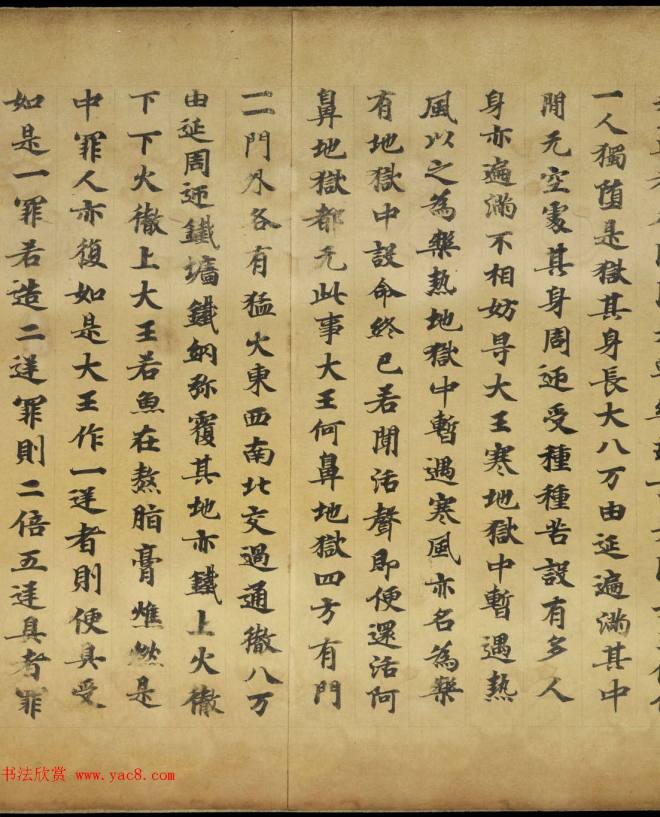 一人獨堕是獄其身長大八万由延遍滿其中
間无空處其身周迊受種種苦設有多人
身亦遍滿不相妨㝵大王寒地獄中暫遇熱
風以之為樂熱地獄中暫遇寒風亦名為樂
有地獄中設命終已若聞活聲即便還活阿
鼻地獄都无此事大王阿鼻地獄四方有門
一一門外各有猛火東西南北交過通徹八万
由延周迊鐵墻鐵網弥覆其地亦鐵上火徹
下下火徹上大王若魚在熬脂膏燋燃是
中罪人亦復如是大王作一逆者則便具受
如是一罪若造二逆罪則二倍五逆具者罪
书法欣赏 www.yac8.com